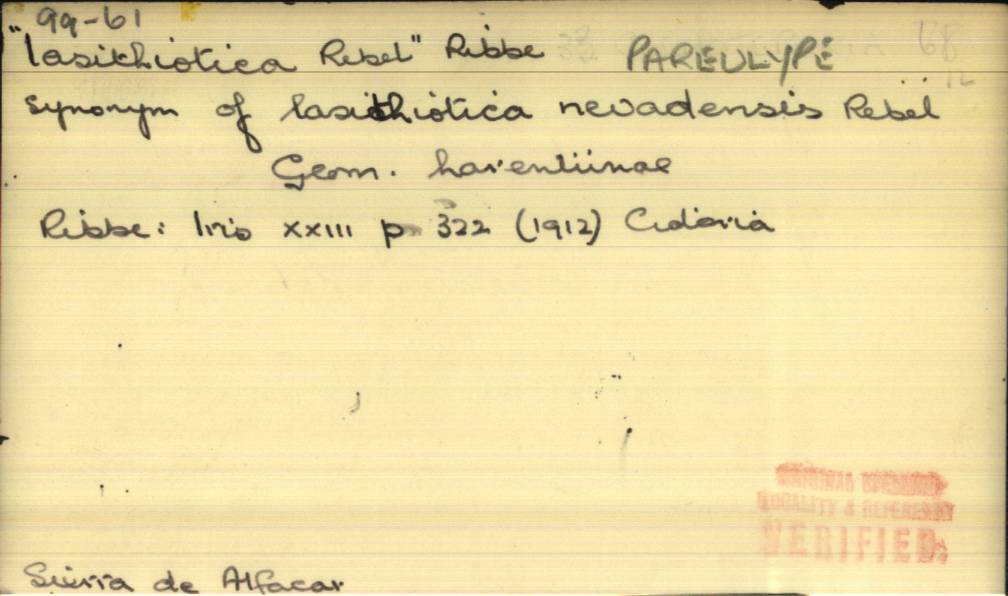 99-61
"lasithiotica Rebel" Ribbe PAREULYPE
Synonym of lasithiotica nevadensis Rebel
Geom. larentiinae
Ribbe: Iris XXIII p 322 (1912) Cidaria
LOCALITY & REFERENCE
VERIFIED.
Sierra de Alfacar